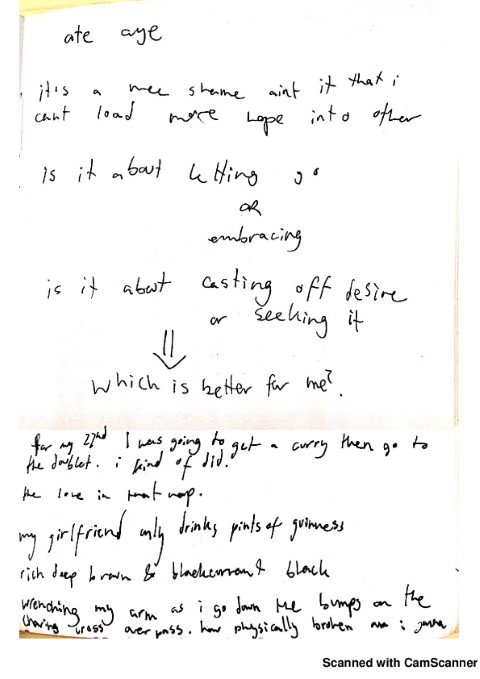 ate aye
it's a wee shame aint it that i
cant load more hope into other
Is it about letting go
OR
embracing
is it about casting off desire
or seeking it
which is better for me?
for my 22nd I was going to get a curry then go to
the doublet. i kind of did.
the love in that
my girlfriend only drinks pints of guinness
rich deep brown & blackcurrant black
wrenching my arm as i go down the bumps on the
charing cross overpass. how physically broken am i gonna
Scanned with CamScanner